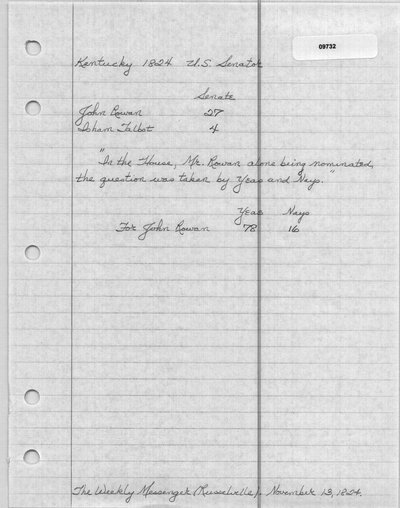 09732
Kentucky 1824 U.S. Senator
Senate
John Rowan 27
Isham Talbot 4
"In the House, Mr. Rowan alone being nominated,
the question was taken by Yeas and Nays."
Yeas Nays
For John Rowan 78 16
The Weekly Messenger (Russelville). November 13, 1824.